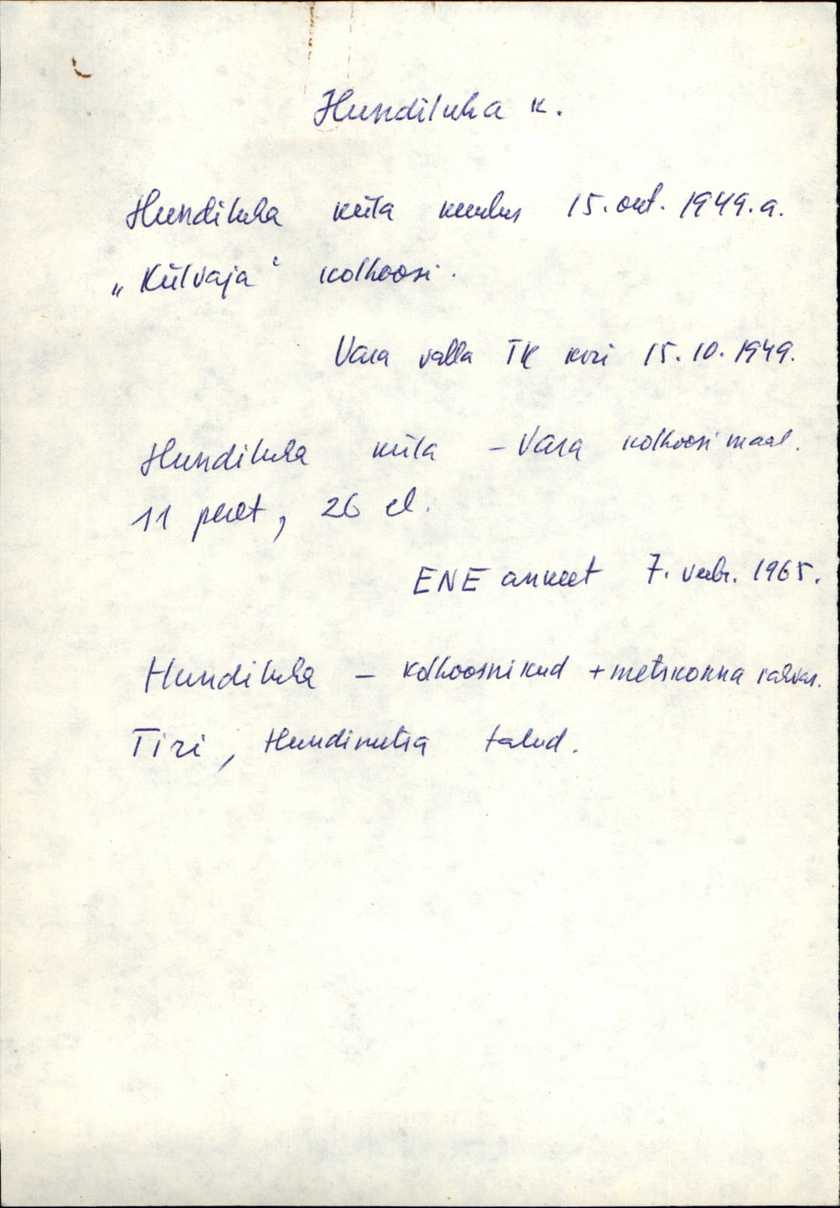 Hundiluha k.
Hundiluha küla kuulus 15. okt. 1949.a.
„Külvaja" kolhoosi.
Vara valla TK kiri 15.10.1949.
Hundiluha küla – Vara kolhoosi maal.
11 peret, 26 el.
ENE ankeet 7. veebr. 1965.
Hundiluha – kolhoosnikud + metskonna rahvas.
Tiri, talud.